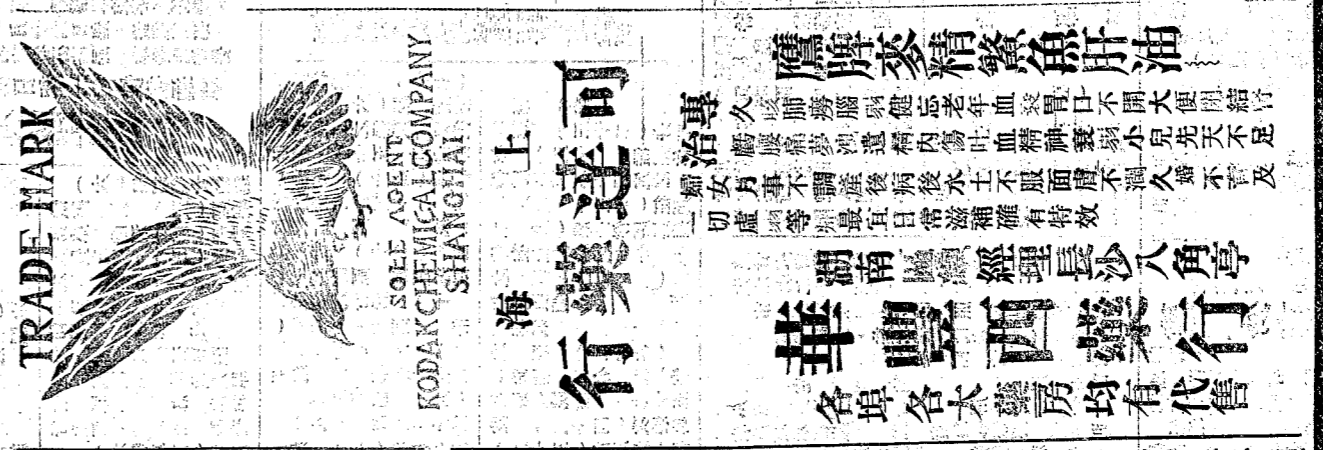 TRADE MARK
SOLE AGENT
KODAKCHEMICALCOMPANY
SHANGHAI
上海
可達藥行
鷹牌麥精鱉魚肝油
專治
久咳肺癆腦弱健忘老年血衰胃口不開大便閉結骨
癆腰痛夢洩遺精內傷吐血精神衰弱小兒先天不足
婦女月事不調產後病後水土不服面膚不潤久婚不育及
一切虛弱等症最宜日常滋補確有特效
湖南經理長沙八角亭
華豐西藥行
各埠各大藥房均有代售